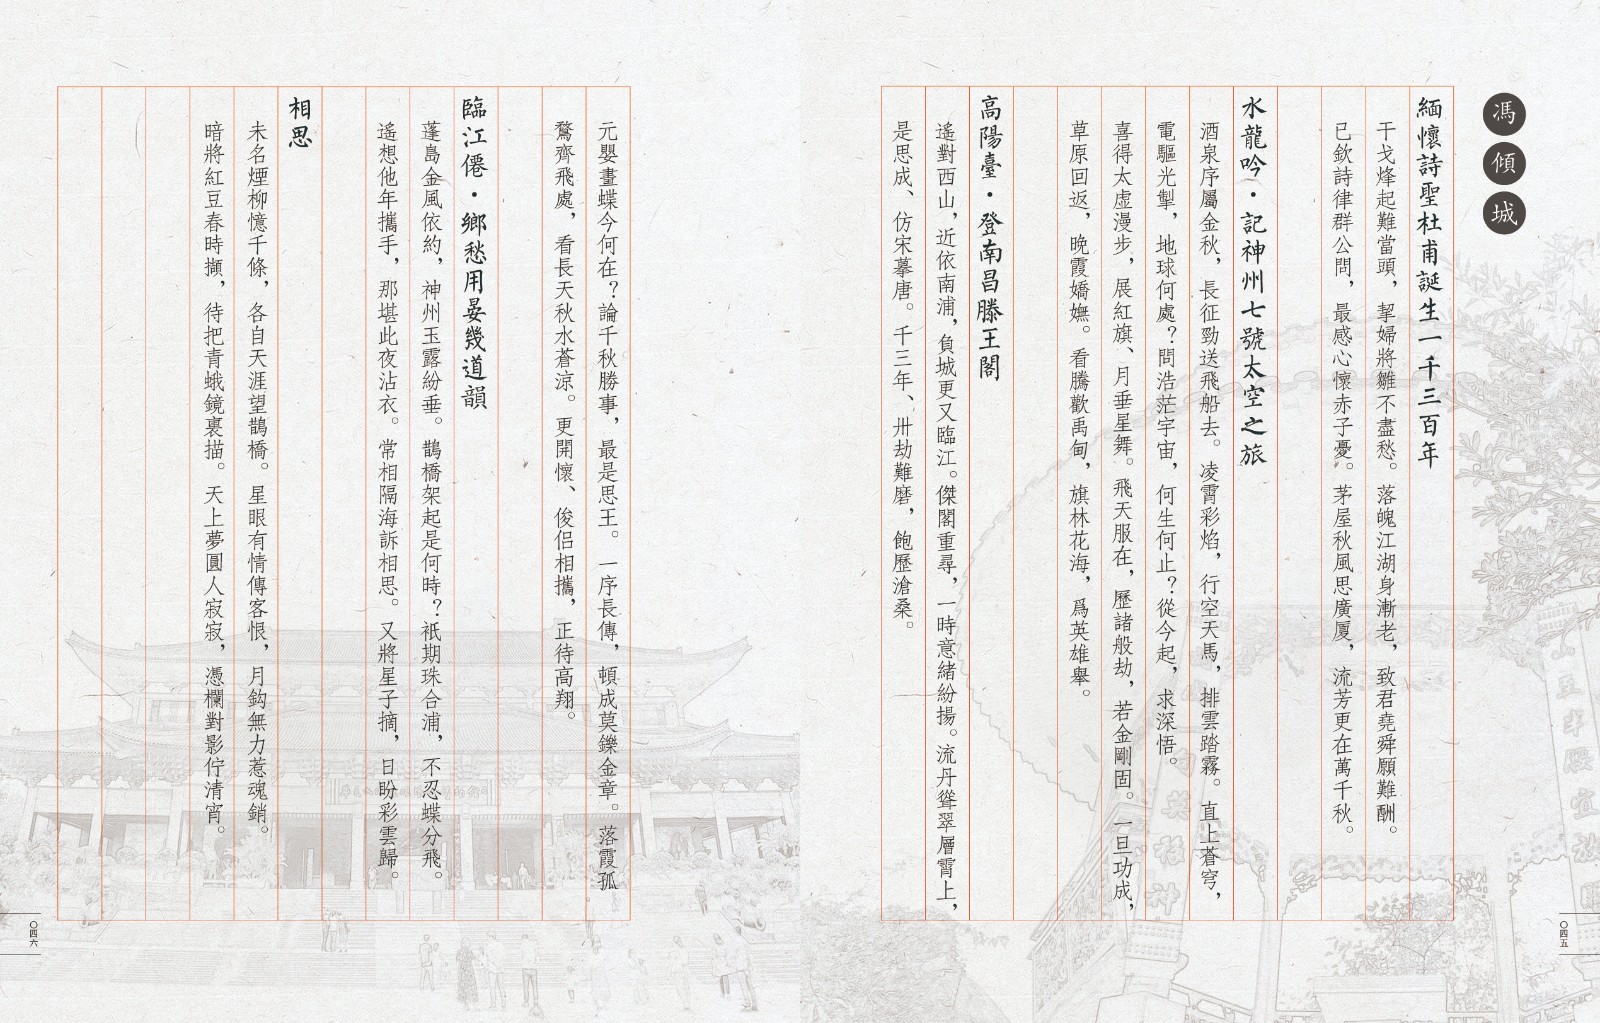 馮傾城
緬懷詩聖杜甫誕生一千三百年
干戈烽起難當頭，挈婦將雛不盡愁。落魄江湖身漸老，致君堯舜願難酬。
已欽詩律群公問，最感心懷赤子憂。茅屋秋風思廣厦，流芳更在萬千秋。
水龍吟·記神州七號太空之旅
酒泉序屬金秋，長征勁送飛船去。凌霄彩焰，行空天馬，排雲踏霧。直上蒼穹，
電驅光掣，地球何處？問浩茫宇宙，何生何止？從今起，求深悟。
喜得太虛漫步，展紅旗、月垂星舞。飛天服在，歷諸般劫，若金剛固。一旦功成，
草原回返，晚霞嬌嫵。看騰歡禹甸，旗林花海，爲英雄舉。
高陽臺·登南昌滕王閣
遙對西山，近依南浦，負城更又臨江。傑閣重尋，一時意緒紛揚。流丹聳翠層霄上，
是思成、仿宋摹唐。千三年、卅劫難磨，飽歷滄桑。
〇四五
元嬰畫蝶今何在？論千秋勝事，最是思王。一序長傳，頓成莫鑠金章。落霞孤
鶩齊飛處，看長天秋水蒼涼。更開懷、俊侣相攜，正待高翔。
臨江僊·鄉愁用晏幾道韻
蓬島金風依約，神州玉露紛垂。鵲橋架起是何時？祇期珠合浦，不忍蝶分飛。
遙想他年攜手，那堪此夜沾衣。常相隔海訴相思。又將星子摘，日盼彩雲歸。
相思
未名煙柳憶千條，各自天涯望鵲橋。星眼有情傳客恨，月鈎無力惹魂銷。
暗將紅豆春時擷，待把青蛾鏡裏描。天上夢圓人寂寂，憑欄對影佇清宵。
〇四六